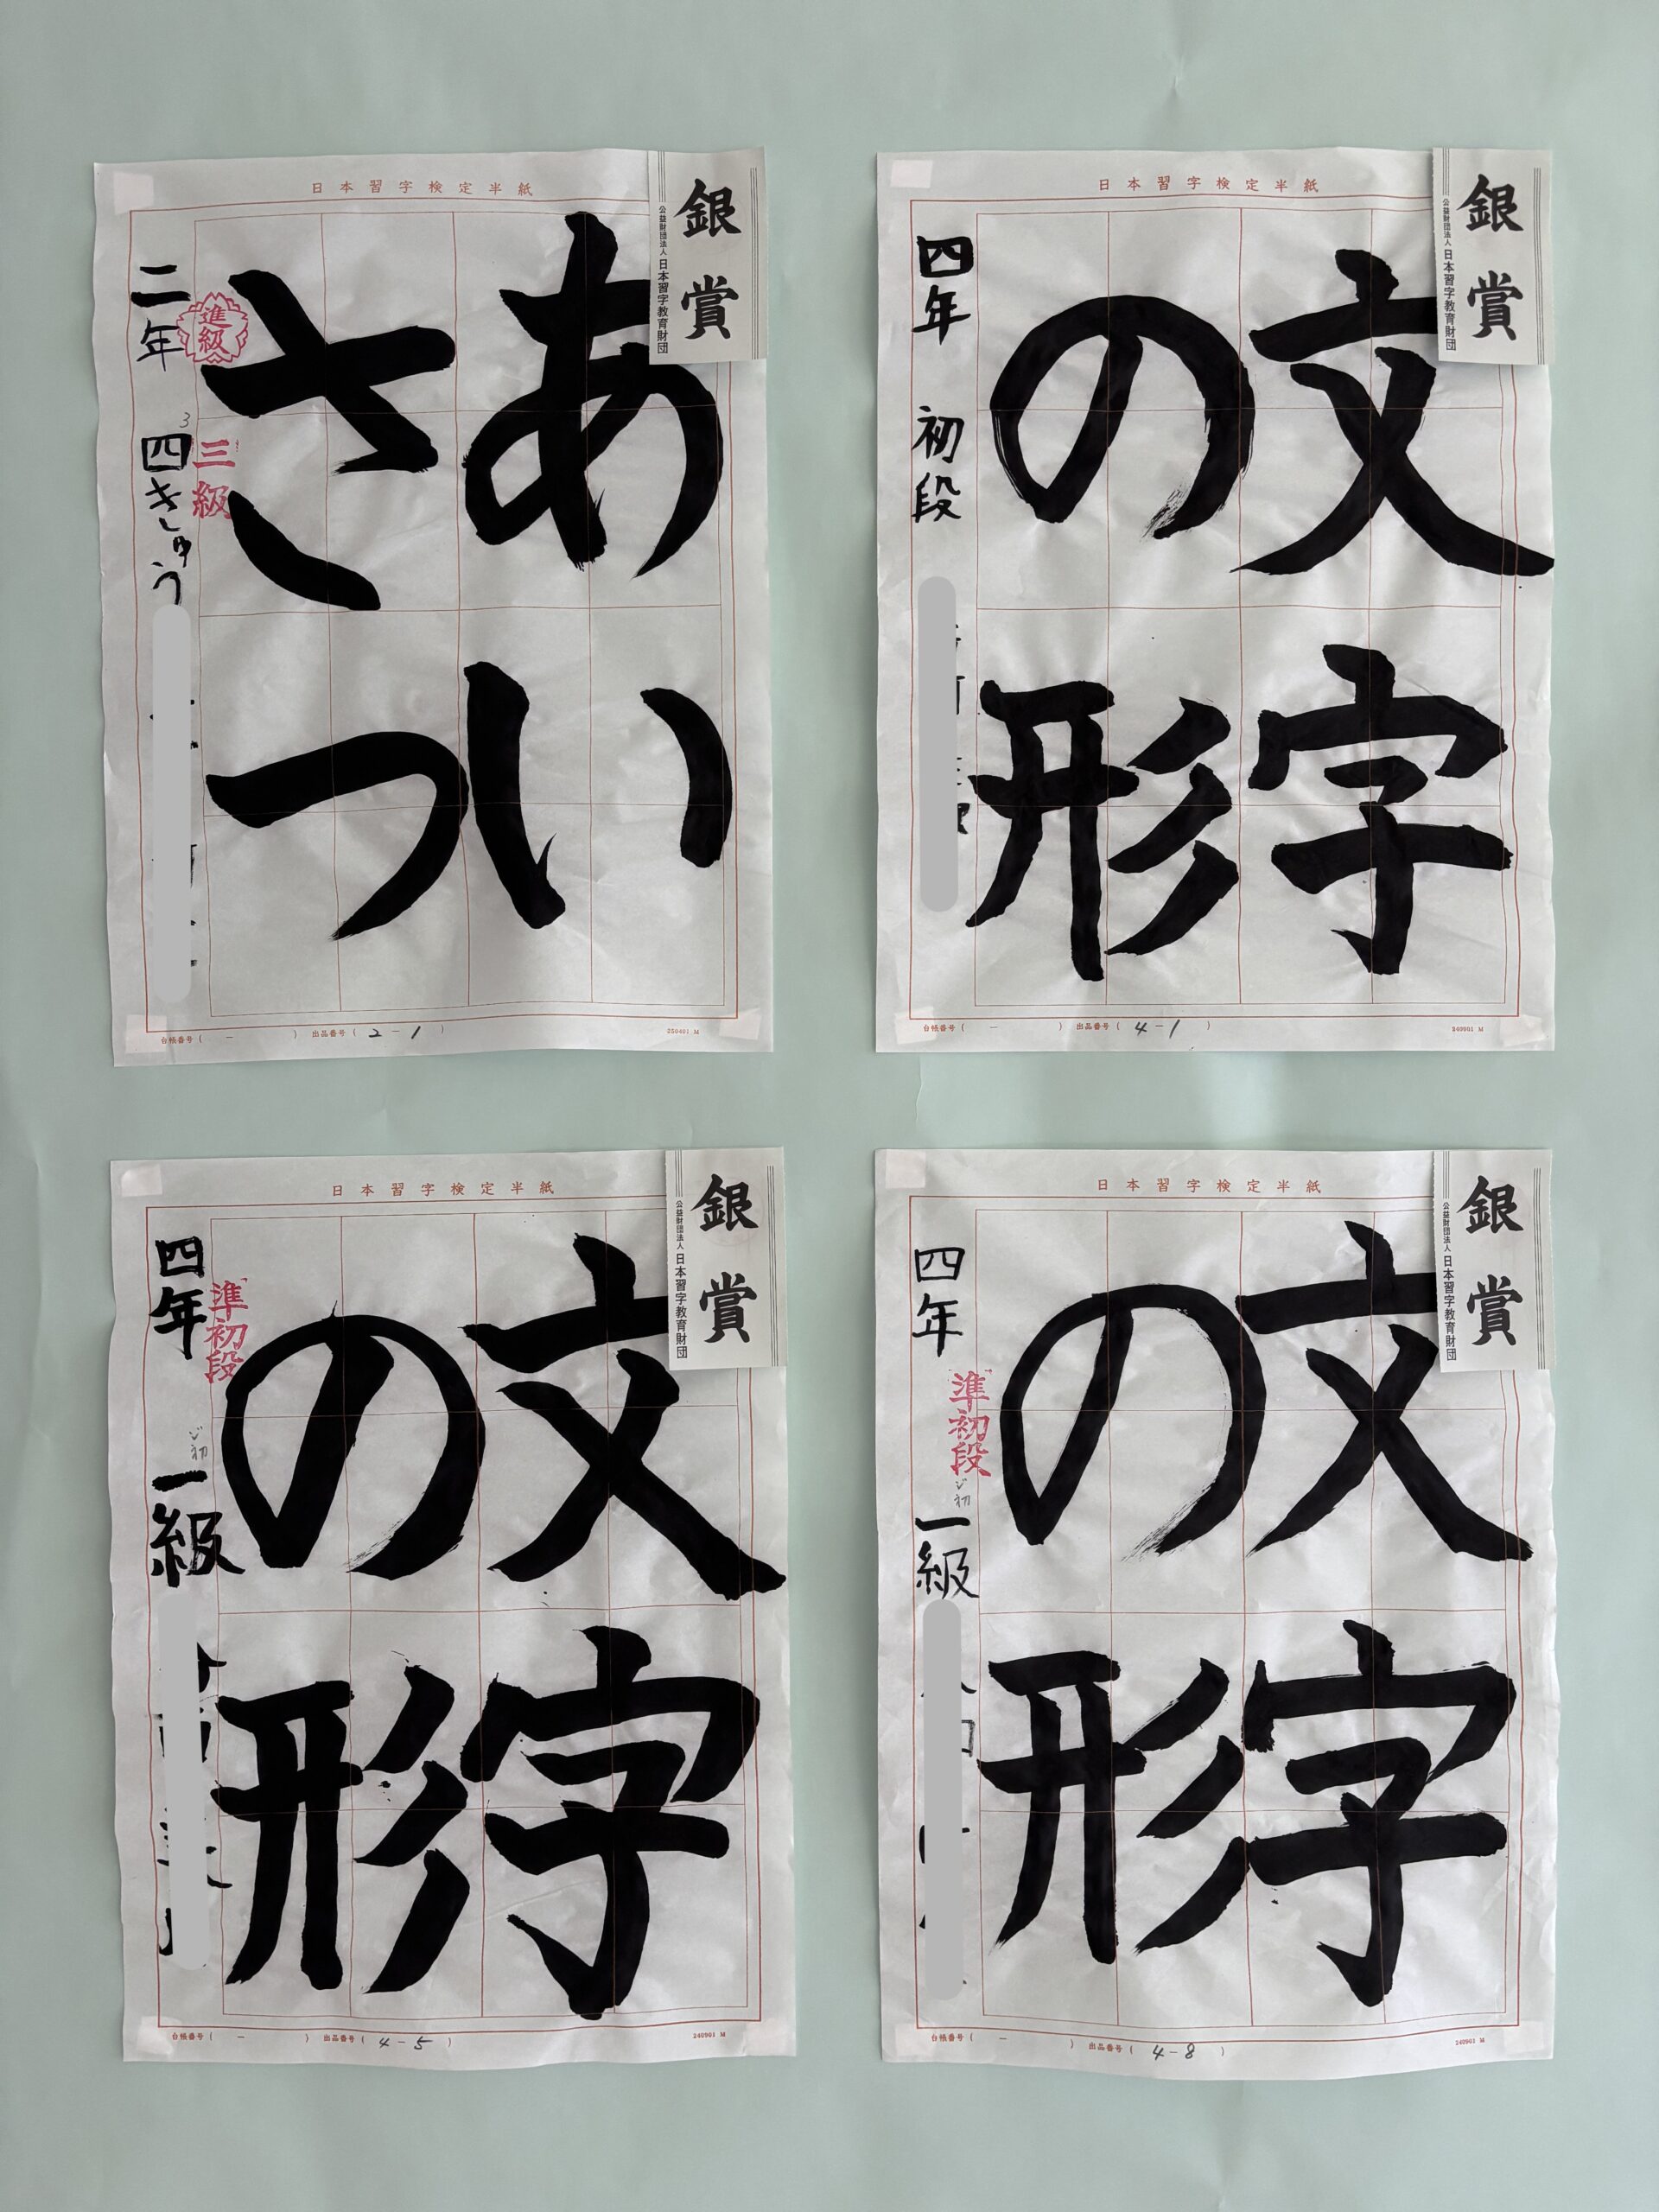 日本習字検定半紙
銀賞
公益財団法人日本習字教育財団
あい
さつ
進級
三級
二年
3
四きゅう
台帳番号(　－　) 出品番号(2－1)
250401 M
日本習字検定半紙
銀賞
公益財団法人日本習字教育財団
文字
の形
四年 初段
台帳番号(　－　) 出品番号(4－1)
240901 M
日本習字検定半紙
銀賞
公益財団法人日本習字教育財団
文字
の形
準初段
四年
ジ初
一級
台帳番号(　－　) 出品番号(4－5)
240901 M
日本習字検定半紙
銀賞
公益財団法人日本習字教育財団
文字
の形
準初段
ジ初
四年 一級
台帳番号(　－　) 出品番号(4－8)
240901 M